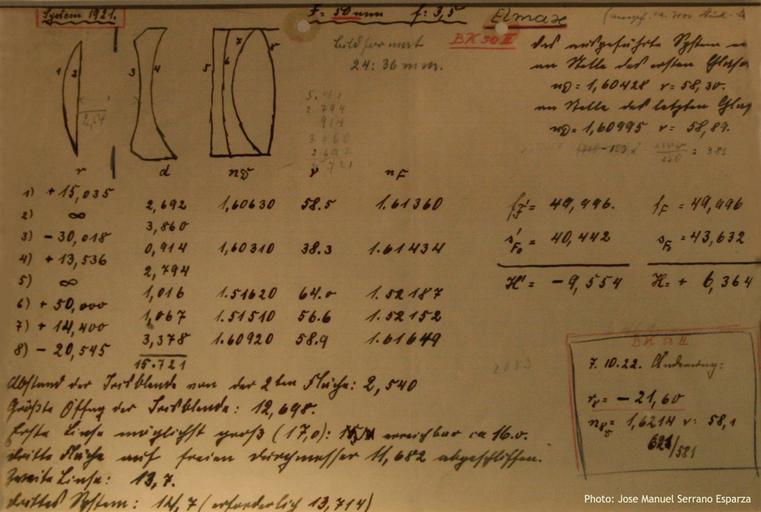 System 1921.
F = 50 mm f: 3,5
Elmax
BK 50 II
Bildformat
24:36 mm.
2.794
914
3.860
2.692
15.721
das ausgeführte System
an Stelle des ersten Glases
nD = 1,60428 v = 58,30.
an Stelle des letzten Glas
nD = 1,60995 v = 58,89.
1 2 3 4 5 6 7 8
r d nD v nF
1) + 15,035
2,692 1,60630 58.5 1.61360
2) ∞
3,860
3) - 30,018
0,914 1,60310 38.3 1.61434
4) + 13,536
2,794
5) ∞
1,016 1.51620 64.0 1.52187
6) + 50,000
1,067 1.51510 56.6 1.52152
7) + 14,400
3,378 1.60920 58.9 1.61649
8) - 20,545
15.721
= 49,996. fF = 49,996
= 40,442 sF = 43,632
H' = - 9,554 H = + 6,364
Abstand der Irisblende von der 2ten Fläche: 2,540
Größte Öffng der Irisblende: 12,698.
Erste Linse möglichst groß (17,0): erreichbar ca 16.0.
dritte Fläche auf freien Durchmesser 11,682 abgeschliffen.
Zweite Linse: 13,7.
drittes System: 14,7 (erforderlich 13,714)
BK 50 II
7.10.22. Änderung:
r8 = - 21,60
= 1,6214 v = 58,1
621/581
Photo: Jose Manuel Serrano Esparza